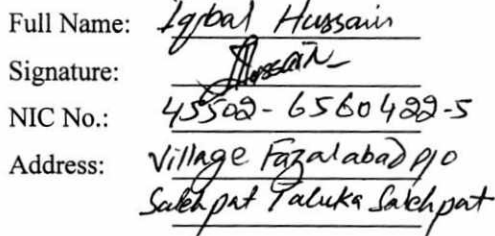 Full Name: Iqbal Hussain
Signature: Hussain
NIC No.: 45502-6560422-5
Address: Village Fazalabad p/o
Salehpat Taluka Salehpat